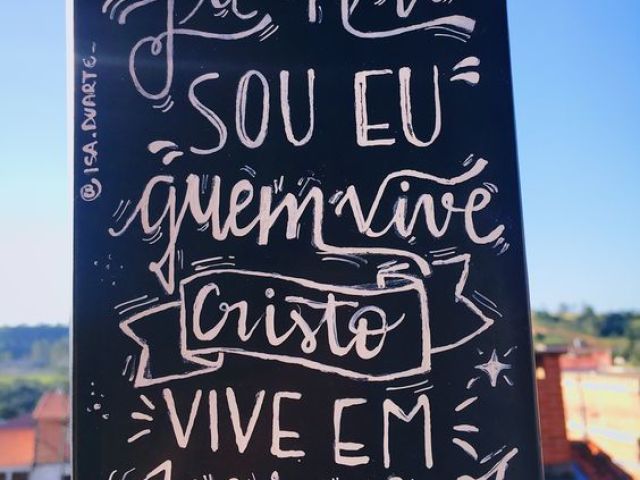 SOU EU
quem vive
Cristo
VIVE EM
@ISA.DUARTE_